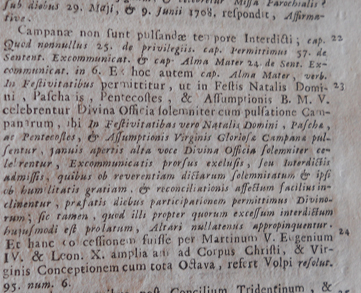 sub diebus 29. Maji, & 9. Junii 1708. respondit, Affirma-
tive.
Campanæ non sunt pulsandæ tempore Interdicti; cap. 22
Quod nonnullus 25. de privilegiis. cap. Permittimus 57. de
Sentent. Excommunicat. & cap. Alma Mater 24. de Sent. Ex-
communicat. in 6. Et hoc autem cap. Alma Mater, verb.
In Festivitatibus permittitur, ut in Festis Natalis Domi- 23
ni, Paschatis, Pentecostes, & Assumptionis B. M. V.
celebrentur Divina Officia solemniter cum pulsatione Cam-
panarum, ibi In Festivitatibus verò Natalis Domini, Paschæ,
ac Pentecostes, & Assumptionis Virginis Gloriosæ Campanæ pul-
sentur, januis apertis alta voce Divina Officia solemniter ce-
lebrentur, Excommunicatis prorsus exclusis, seu Interdictis
admissis, quibus ob reverentiam dictarum solemnitatum & ipsi
ob humilitatis gratiam, & reconciliationis affectum facilius in-
clinentur, præfatis diebus participationem permittimus Divino-
rum; sic tamen, quod illi propter quorum excessum interdictum
hujusmodi est prolatum, Altari nullatenus appropinquentur.
Et hanc concessionem fuisse per Martinum V. Eugenium 24
IV. & Leon. X. ampliatam ad Corpus Christi, & Vir-
ginis Conceptionem cum tota Octava, refert Volpi resolut.
95. num. 6.
Concilium Tridentinum, &